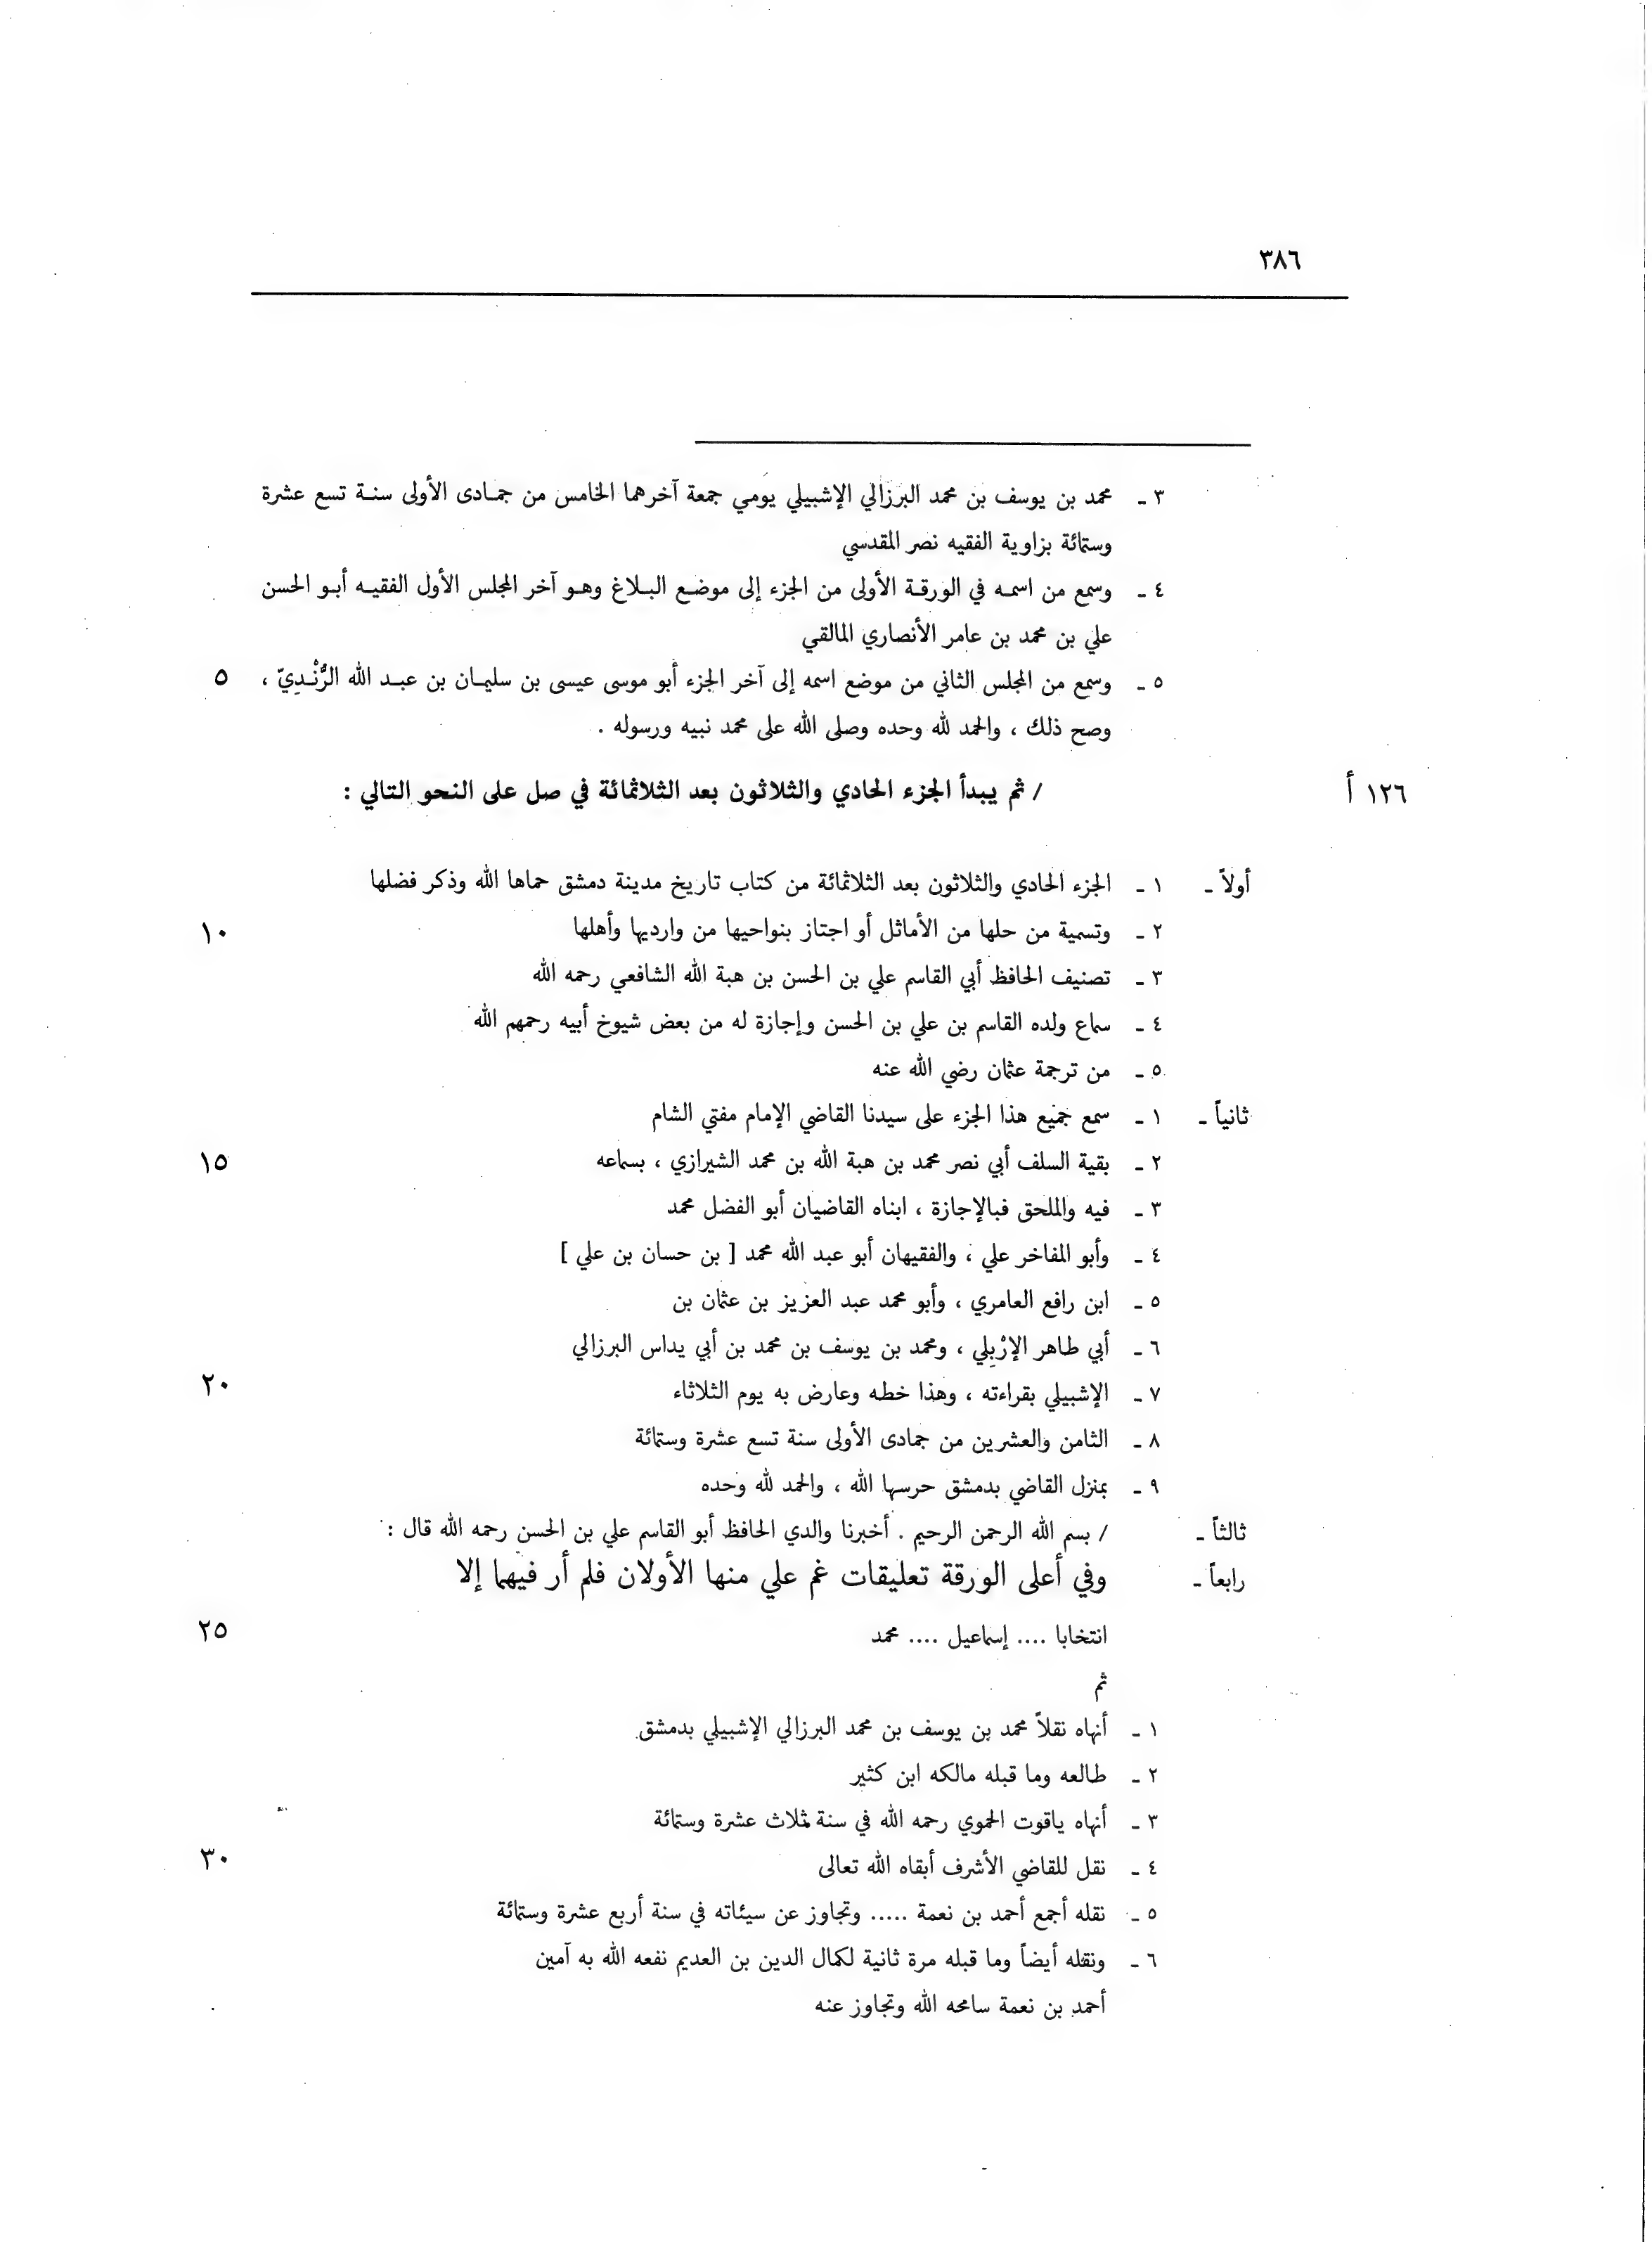 ٣٨٦
٣ ـ محمد بن يوسف بن محمد البرزالي الإشبيلي يومي جمعة آخرهما الخامس من جمادى الأولى سنة تسع عشرة
وستمائة بزاوية الفقيه نصر المقدسي
٤ ـ وسمع من اسمه في الورقة الأولى من الجزء إلى موضع البلاغ وهو آخر المجلس الأول الفقيه أبو الحسن
علي بن محمد بن عامر الأنصاري المالقي
٥ ـ وسمع من المجلس الثاني من موضع اسمه إلى آخر الجزء أبو موسى عيسى بن سليمان بن عبد الله الرُّنْدِيّ ، ٥
وصح ذلك ، والحمد لله وحده وصلى الله على محمد نبيه ورسوله .
١٢٦ أ / ثم يبدأ الجزء الحادي والثلاثون بعد الثلاثمائة في صل على النحو التالي :
أولاً ـ ١ ـ الجزء الحادي والثلاثون بعد الثلاثمائة من كتاب تاريخ مدينة دمشق حماها الله وذكر فضلها
٢ ـ وتسمية من حلها من الأماثل أو اجتاز بنواحيها من وارديها وأهلها ١٠
٣ ـ تصنيف الحافظ أبي القاسم علي بن الحسن بن هبة الله الشافعي رحمه الله
٤ ـ سماع ولده القاسم بن علي بن الحسن وإجازة له من بعض شيوخ أبيه رحمهم الله
٥ ـ من ترجمة عثمان رضي الله عنه
ثانياً ـ ١ ـ سمع جميع هذا الجزء على سيدنا القاضي الإمام مفتي الشام
٢ ـ بقية السلف أبي نصر محمد بن هبة الله بن محمد الشيرازي ، بسماعه ١٥
٣ ـ فيه والملحق فبالإجازة ، ابناه القاضيان أبو الفضل محمد
٤ ـ وأبو المفاخر علي ، والفقيهان أبو عبد الله محمد [ بن حسان بن علي ]
٥ ـ ابن رافع العامري ، وأبو محمد عبد العزيز بن عثمان بن
٦ ـ أبي طاهر الإرْبِلي ، ومحمد بن يوسف بن محمد بن أبي يداس البرزالي
٧ ـ الإشبيلي بقراءته ، وهذا خطه وعارض به يوم الثلاثاء ٢٠
٨ ـ الثامن والعشرين من جمادى الأولى سنة تسع عشرة وستمائة
٩ ـ بمنزل القاضي بدمشق حرسها الله ، والحمد لله وحده
ثالثاً ـ / بسم الله الرحمن الرحيم . أخبرنا والدي الحافظ أبو القاسم علي بن الحسن رحمه الله قال :
رابعاً ـ وفي أعلى الورقة تعليقات غم علي منها الأولان فلم أر فيهما إلا
انتخابا .... إسماعيل .... محمد ٢٥
ثم
١ ـ أنهاه نقلاً محمد بن يوسف بن محمد البرزالي الإشبيلي بدمشق
٢ ـ طالعه وما قبله مالكه ابن كثير
٣ ـ أنهاه ياقوت الحموي رحمه الله في سنة ثلاث عشرة وستمائة
٤ ـ نقل للقاضي الأشرف أبقاه الله تعالى ٣٠
٥ ـ نقله أجمع أحمد بن نعمة ..... وتجاوز عن سيئاته في سنة أربع عشرة وستمائة
٦ ـ ونقله أيضاً وما قبله مرة ثانية لكمال الدين بن العديم نفعه الله به آمين
أحمد بن نعمة سامحه الله وتجاوز عنه